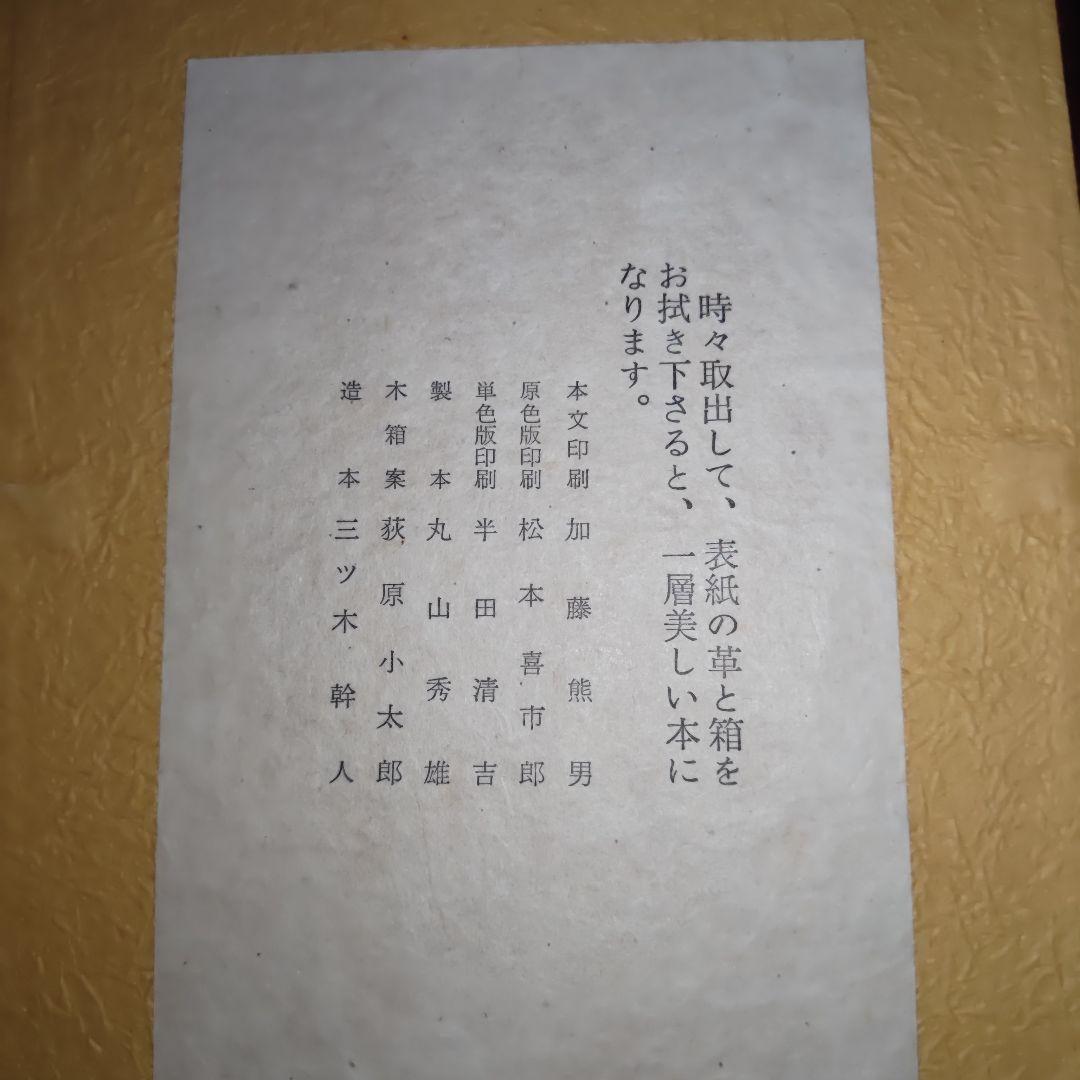 時々取出して、表紙の革と箱を
お拭き下さると、一層美しい本に
なります。
本文印刷 加藤熊男
原色版印刷 松本喜市郎
単色版印刷 半田清吉
製本 丸山秀雄
木箱案 荻原小太郎
造本 三ツ木幹人